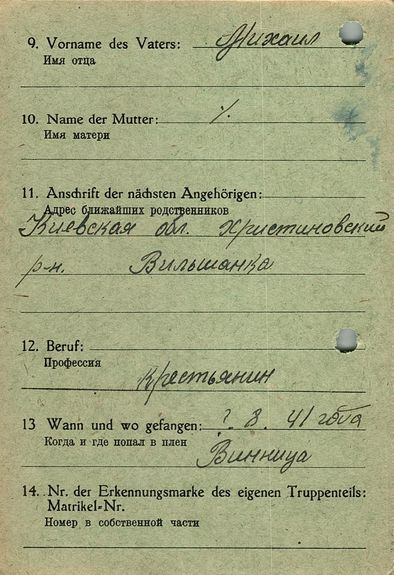 9. Vorname des Vaters: Михаил
Имя отца
10. Name der Mutter: %.
Имя матери
11. Anschrift der nächsten Angehörigen:
Адрес ближайших родственников
Киевская обл. Христиновский
р-н. Вильшанка
12. Beruf:
Профессия
Крестьянин
13 Wann und wo gefangen: ?. 8. 41 года
Когда и где попал в плен
Винница
14. Nr. der Erkennungsmarke des eigenen Truppenteils:
Matrikel-Nr.
Номер в собственной части